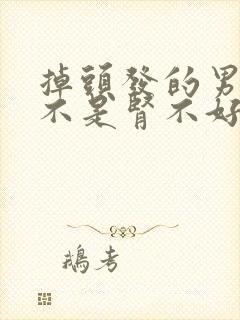 掉頭發的男
不是腎不好
鵝考